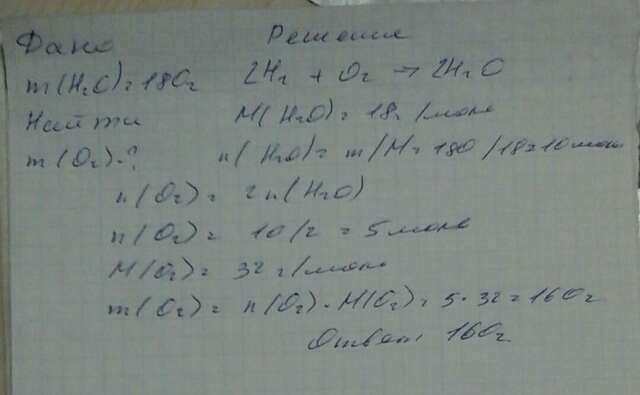 Дано Решение
m(H2O)=180г 2H2 + O2 → 2H2O
Найти M(H2O)=18г/моль
m(O2)-? n(H2O)=m/M=180/18=10моль
n(O2)= 2n(H2O)
n(O2)= 10/2=5моль
M(O2)= 32г/моль
m(O2)= n(O2)·M(O2)=5·32=160г
Ответ 160г